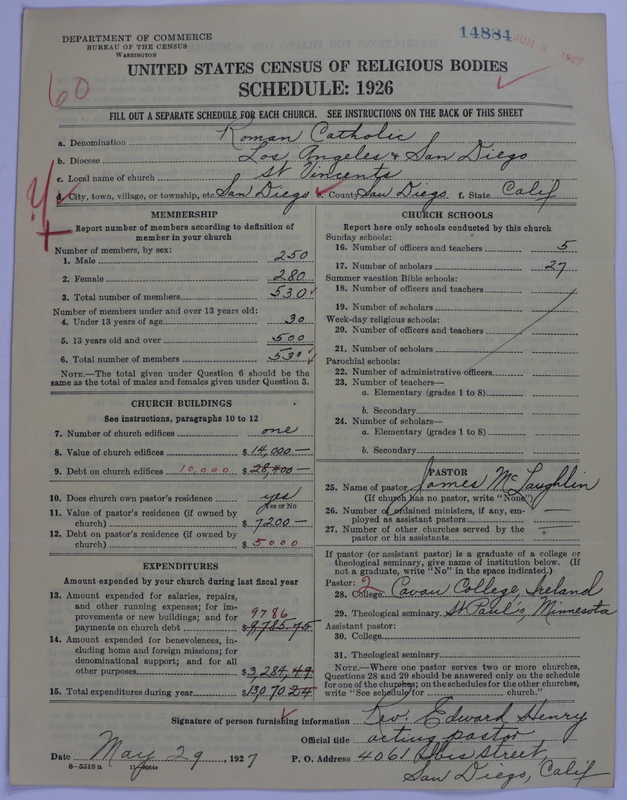 DEPARTMENT OF COMMERCE
BUREAU OF THE CENSUS
WASHINGTON
14884
JUN 8 1927
60
UNITED STATES CENSUS OF RELIGIOUS BODIES
SCHEDULE: 1926
FILL OUT A SEPARATE SCHEDULE FOR EACH CHURCH. SEE INSTRUCTIONS ON THE BACK OF THIS SHEET
a. Denomination Roman Catholic
b. Diocese Los Angeles & San Diego
c. Local name of church St Vincents
d. City, town, village, or township, etc. San Diego e. County San Diego f. State Calif
MEMBERSHIP
Report number of members according to definition of
member in your church
Number of members, by sex:
1. Male 250
2. Female 280
3. Total number of members 530
Number of members under and over 13 years old:
4. Under 13 years of age 30
5. 13 years old and over 500
6. Total number of members 530
NOTE.—The total given under Question 6 should be the
same as the total of males and females given under Question 3.
CHURCH BUILDINGS
See instructions, paragraphs 10 to 12
7. Number of church edifices one
8. Value of church edifices $ 14,000—
9. Debt on church edifices 10,000 $ 28,400—
10. Does church own pastor's residence yes
Yes or No
11. Value of pastor's residence (if owned by
church) $ 7200—
12. Debt on pastor's residence (if owned by
church) $ 5000
EXPENDITURES
Amount expended by your church during last fiscal year
13. Amount expended for salaries, repairs,
and other running expenses; for im-
provements or new buildings; and for
payments on church debt 9786 $ 9785.75
14. Amount expended for benevolences, in-
cluding home and foreign missions; for
denominational support; and for all
other purposes $ 3,284,49
15. Total expenditures during year $ 13,070 24
CHURCH SCHOOLS
Report here only schools conducted by this church
Sunday schools:
16. Number of officers and teachers 5
17. Number of scholars 27
Summer vacation Bible schools:
18. Number of officers and teachers
19. Number of scholars
Week-day religious schools:
20. Number of officers and teachers
21. Number of scholars
Parochial schools:
22. Number of administrative officers
23. Number of teachers—
a. Elementary (grades 1 to 8)
b. Secondary
24. Number of scholars—
a. Elementary (grades 1 to 8)
b. Secondary
PASTOR
25. Name of pastor James McLaughlin
(If church has no pastor, write "None")
26. Number of ordained ministers, if any, em-
ployed as assistant pastors —
27. Number of other churches served by the
pastor or his assistants —
If pastor (or assistant pastor) is a graduate of a college or
theological seminary, give name of institution below. (If
not a graduate, write "No" in the space indicated.)
Pastor: 2
28. College Cavan College, Ireland
29. Theological seminary St Paul's, Minnesota
Assistant pastor:
30. College
31. Theological seminary
NOTE.—Where one pastor serves two or more churches,
Questions 28 and 29 should be answered only on the schedule
for one of the churches; on the schedules for the other churches,
write "See schedule for church."
Signature of person furnishing information Rev. Edward Henry
Official title acting pastor
Date May 29, 1927 P. O. Address 4061 Ibis Street,
San Diego, Calif
8—5518 a